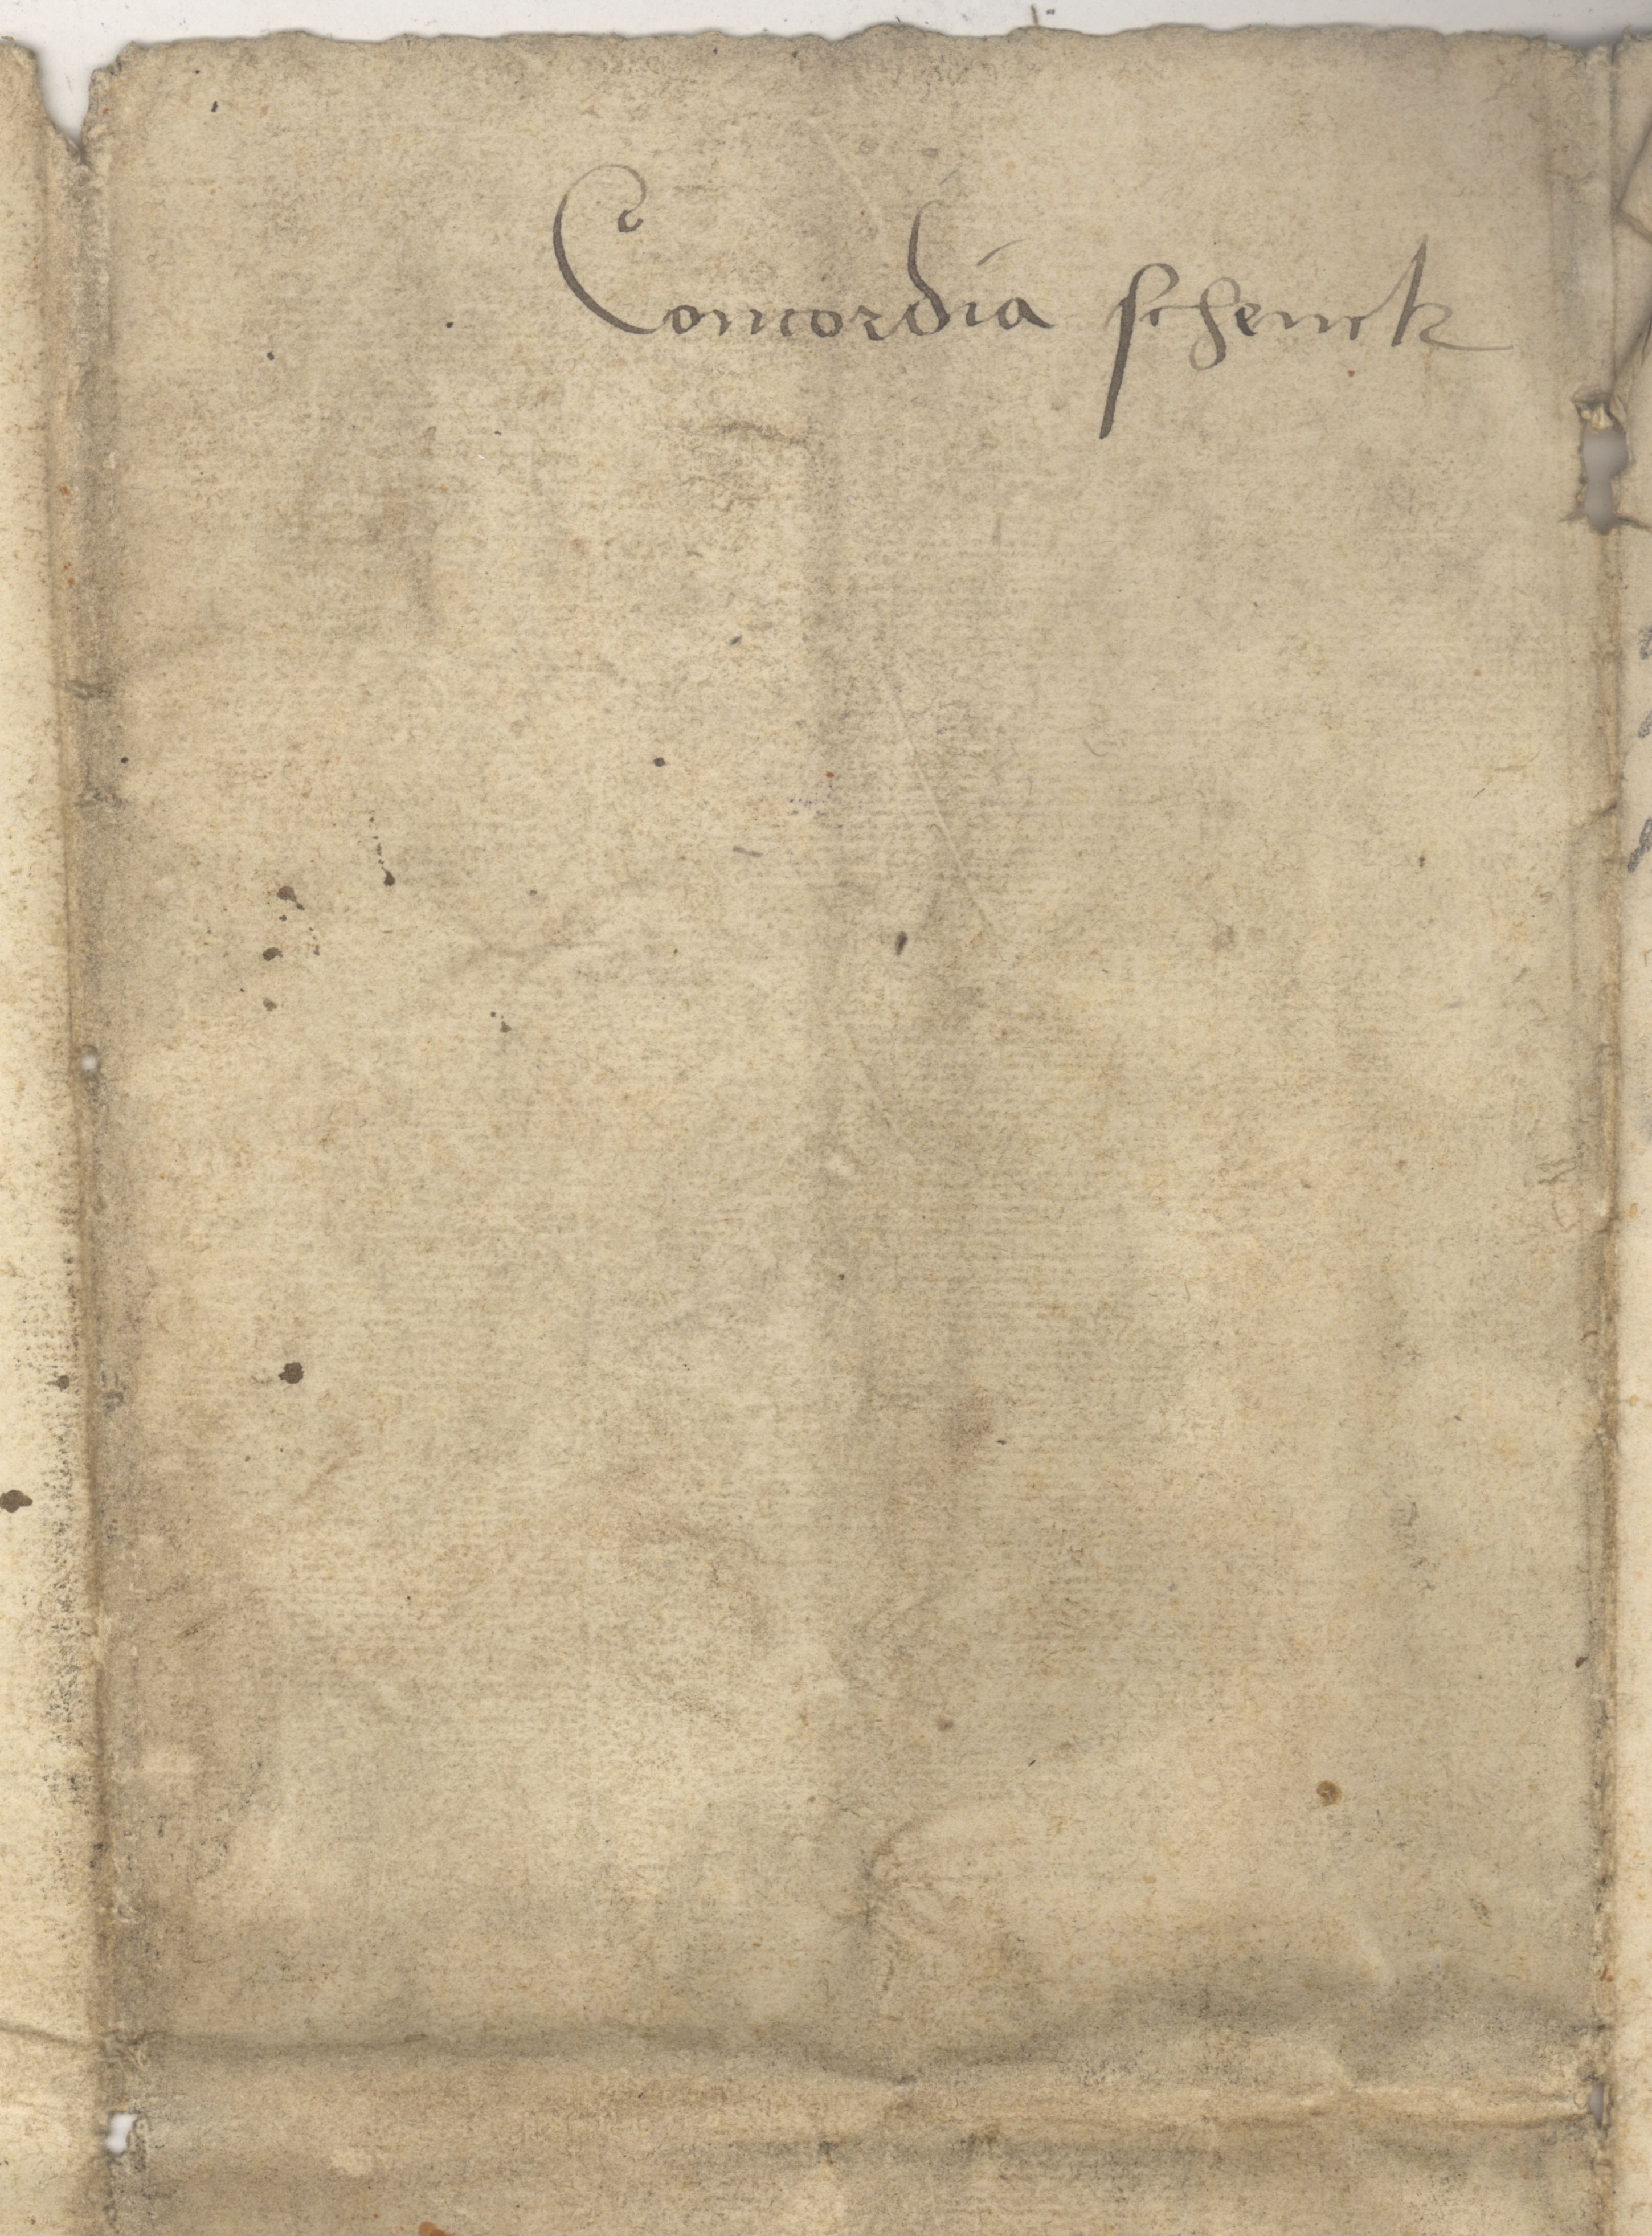 Concordia schenck